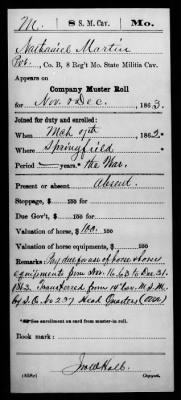 M. 8 S. M. Cav. Mo.
Nathaniel Martin
Pvt., Co. B, 8 Reg't Mo. State Militia Cav.
Appears on
Company Muster Roll
for Nov. & Dec., 1863.
Joined for duty and enrolled:
When Mch 1862.
Where Springfield
Period years. the War.
Present or absent Absent.
Stoppage, $ 100 for
Due Gov't, $ 100 for
Valuation of horse, $ 100
Valuation of horse equipments, $ 100
Remarks: Pay due for use of horse & horse
equipments from Nov. 16.63 to Dec. 31.
1863. Transferred from 14 Cav. M.S.M.
by S.O. No 237 Head Quarters
*See enrollment on card from muster-in roll.
Book mark:
(358c) Copyist.